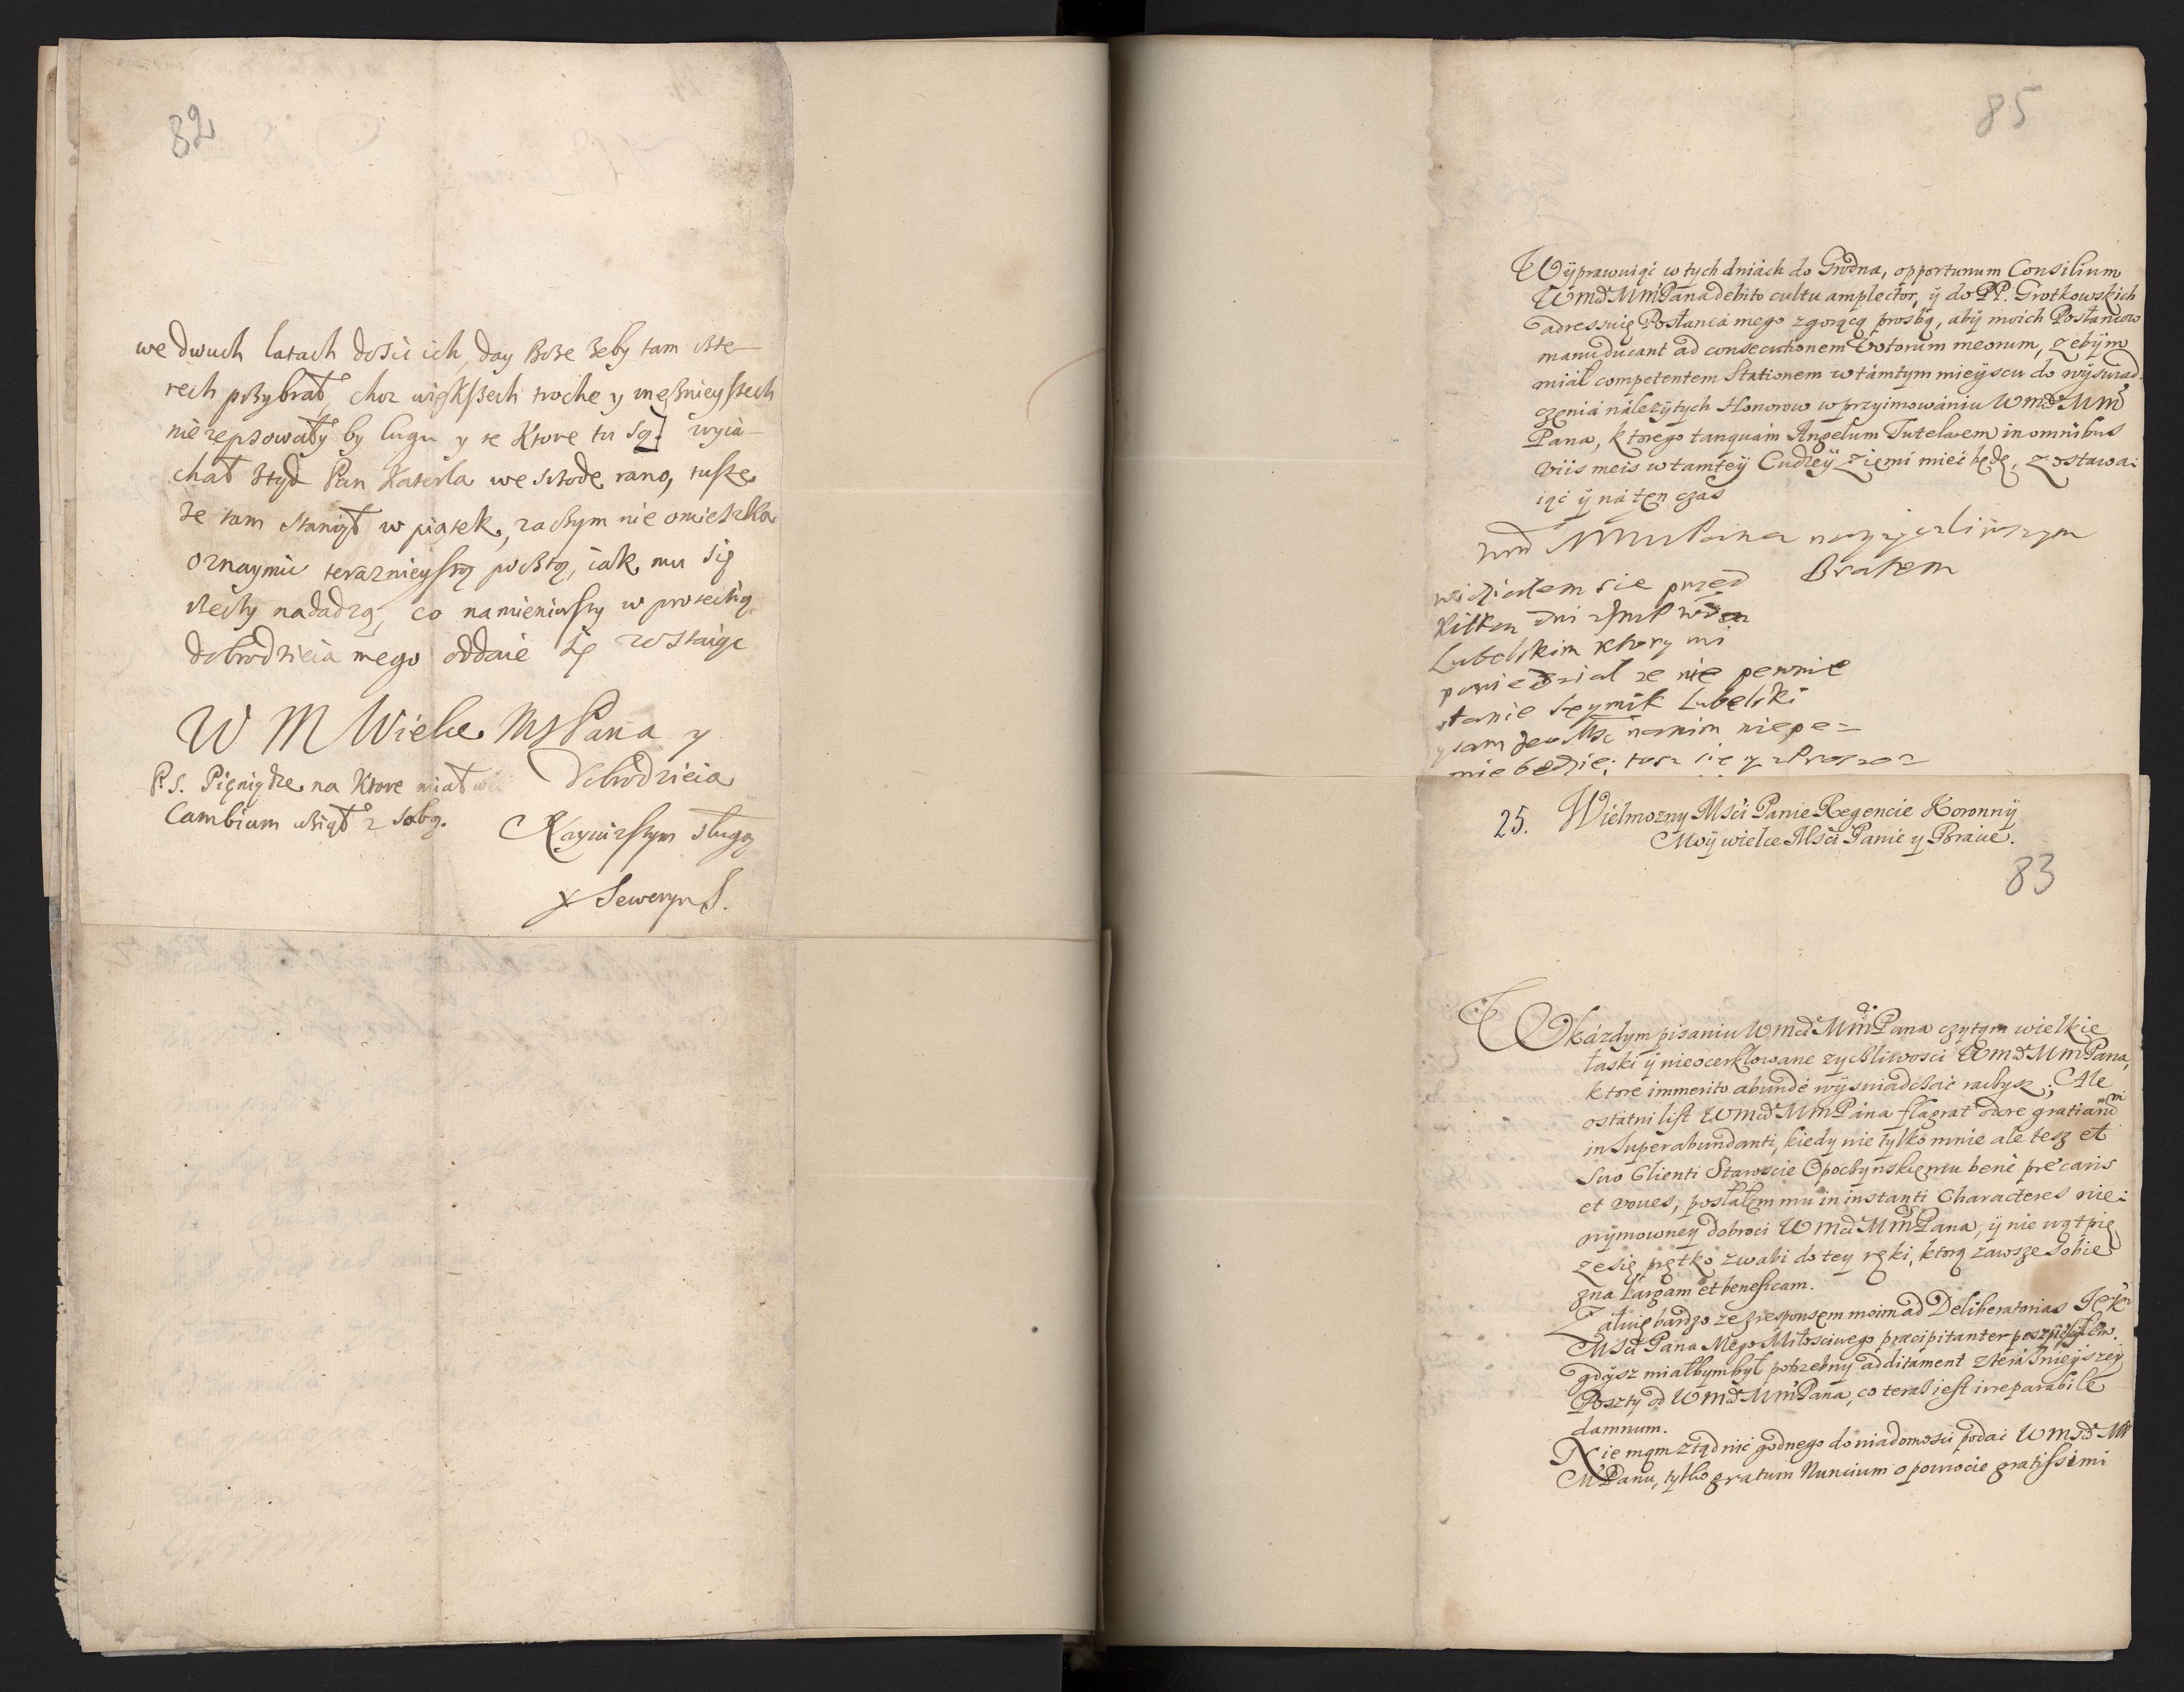 82
we dwuch latach dosić ich, day Boże żeby tam czte-
rech przybrał, choc więkßech troche y mężnieyszech
nie repsowałÿ by lugu y te ktore tu są] wyia-
chał ztąd Pan Katerla we srzode rano, tuszę
że tam stanął w piątek, zaczym nie omieszka
oznaymic teraznieyszą pocztą, iak mu się
rzeczy nadadzą, co namieniwszy w protectią
dobrodzieia mego oddaie się zostaiąc
W M Wielce MsPana y
Dobrodzieia
P.S. Pieniądze na ktore miał
Cambium wziął z sobą.
Nayniższym sługą
X Seweryn S.
85
Wÿprawuiąć w tych dniách do Grodna, opportunum Consilium
WmćMmPana debito cultu amplector, ÿ do PP. Grotkowskich
adressuię Posłancá mego z gorącą prosbą, abÿ moich Posłancow
manuducant ad consecutionem Votorum meorum, zebÿm
miał competentem Stationem w támtym mieÿscu do wÿswiad-
czeniá nálezÿtych Honorow w przyimowániu WmćMm
Pana, ktorego tanquam Angelum Tutelarem in omnibus
viis meis w tamteÿ Cudzeÿ ziemi mieć będę, zostawa-
iąć ÿ ná ten czas
Wm MMm Pana nayzyczliwszym
Bratem
widziałem sie przed
kilkem dni z Jmć wdem
Lubelskim ktory mi
powiedzial ze nie pewnie
stanie seymik Lubelski
y sam Jeo Msc nanim niepe-
wnie bedzie; tusz sie y z Proszo
25. Wielmozny Msći Panie Regencie Koronnÿ
Moÿ wielce Mśći Panie y Bracie.
83
W kázdym pisaniu WmćMmPana czytam wielkie
łaski ÿ nieocerklowane zyczliwosci WmćMmPana,
ktore immerito abunde wÿswiadczać raczysz; Ale
ostatni list WmćMmPána flagrat odore gratiarum
in Superabundanti, kiedy nie tylko mnie ale tesz et
Suo Clienti Staroscie Opoczynskiemu bene precaris
et voues, posłałem mu in instanti Characteres nie-
wymowneÿ dobroci WmćMmPana, ÿ nie wątpię
ze się prętko zwabi do tey ręki, ktorą zawsze Sobie
zna largam et beneficam.
Załuię bardzo ze z responsem moim ad Deliberatorias Je Kr
Msći Pana Mego Miłosciwego præcipitanter pospieszyłem.
gdysz miałbym był potrzebny additament z teraznieÿszeÿ
Poszty od WmćMmPana, co teras iest irreparabile
damnum.
Nie mąm ztąd nić godnego do wiadomosci podać WmśćM
MPanu, tylko gratum Nuncium o powrocie gratissimi